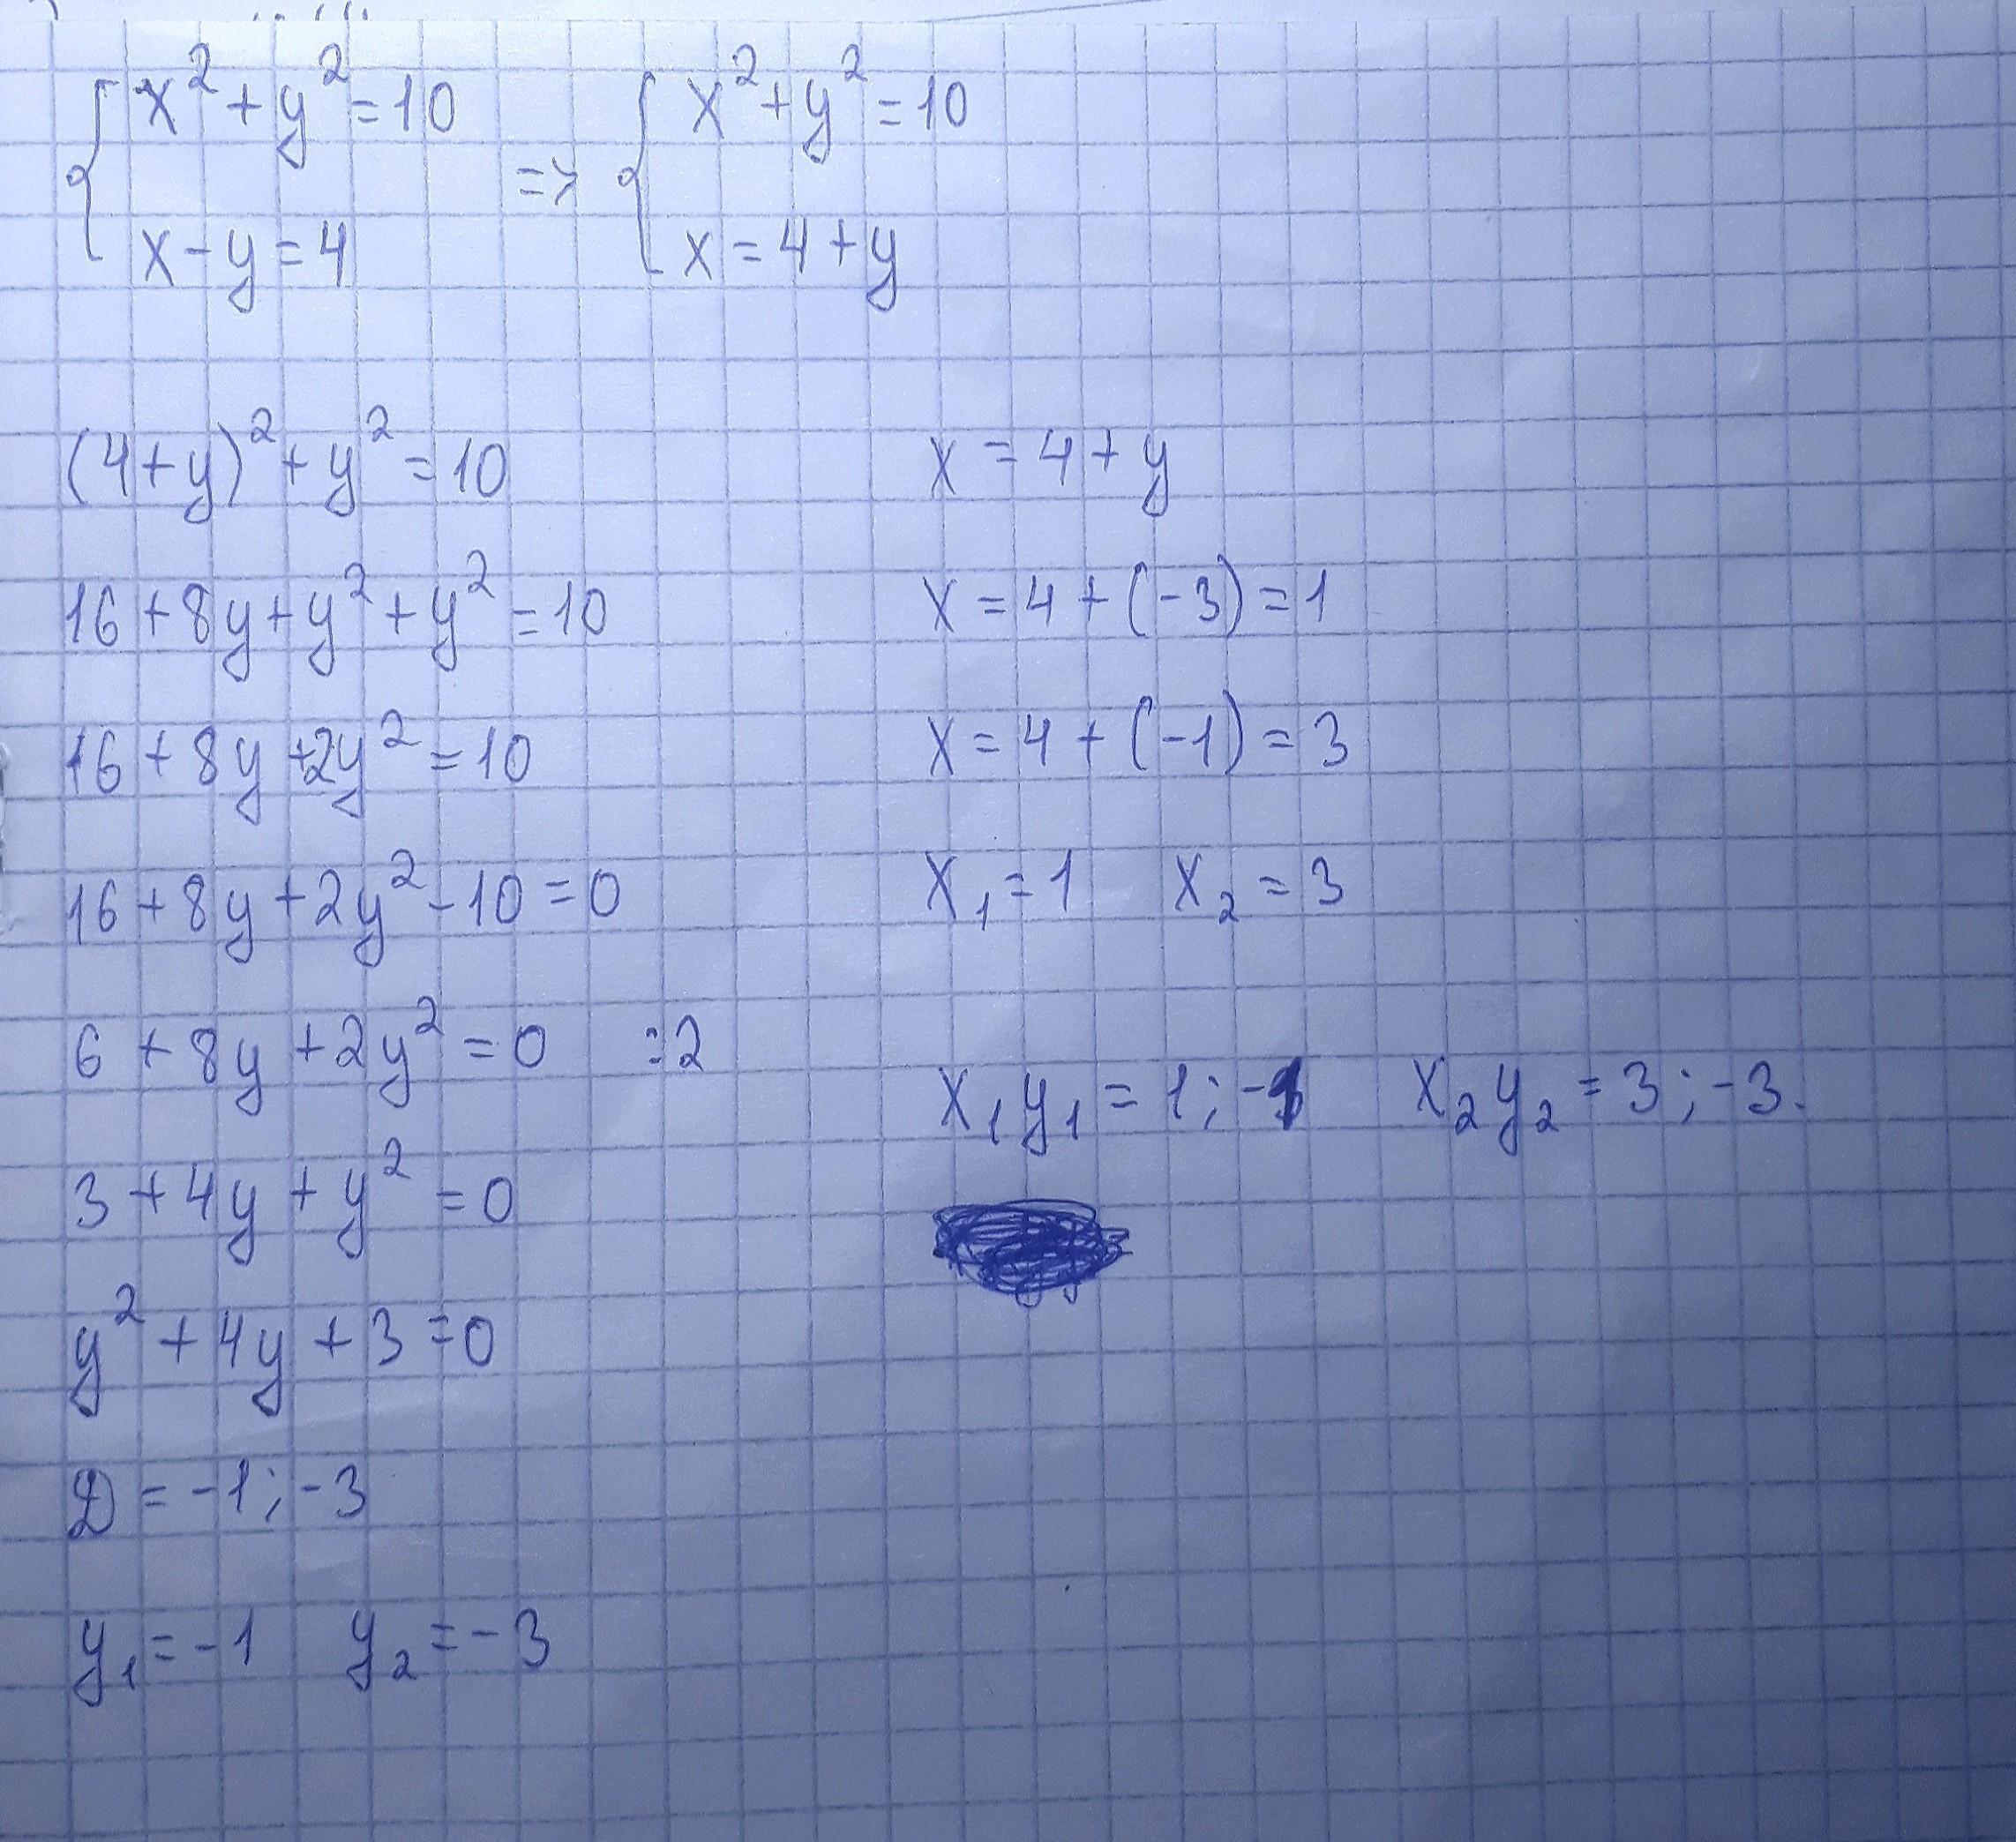 { x² + y² = 10 => { x² + y² = 10
x - y = 4 x = 4 + y
(4 + y)² + y² = 10
16 + 8y + y² + y² = 10
16 + 8y + 2y² = 10
16 + 8y + 2y² - 10 = 0
6 + 8y + 2y² = 0 :2
3 + 4y + y² = 0
y² + 4y + 3 = 0
D = -1; -3
y₁ = -1 y₂ = -3
x = 4 + y
x = 4 + (-3) = 1
x = 4 + (-1) = 3
x₁ = 1 x₂ = 3
x₁y₁ = 1; -1 x₂y₂ = 3; -3.